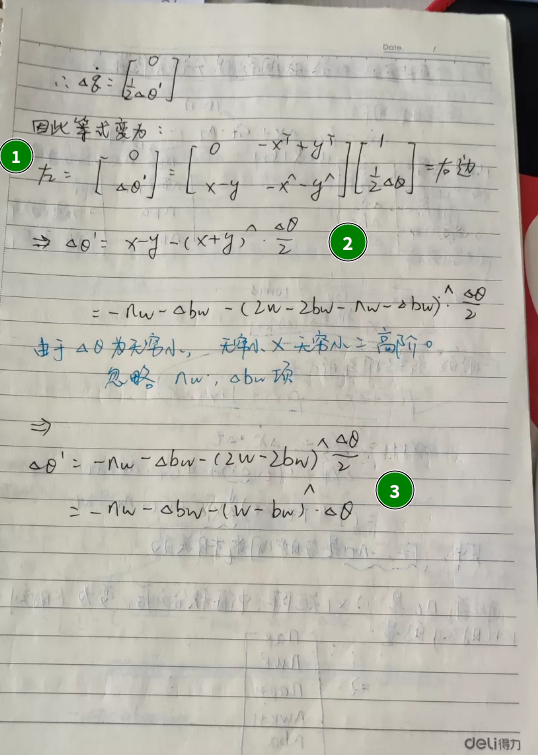 Date. /
∴ Δq̇ = [0; ½Δθ']
因此等式变为:
1 左 = [0; Δθ'] = [0 -xᵀ+yᵀ; x-y -x^-y^] [1; ½Δθ] = 右边
⇒ Δθ' = x-y-(x+y)^ · Δθ/2 2
= -nw - Δbw - (2w-2bw-nw-Δbw)^ · Δθ/2
由于Δθ为无穷小, 无穷小×无穷小=高阶。
忽略 nw, Δbw项
⇒
Δθ' = -nw - Δbw - (2w-2bw)^ Δθ/2
= -nw - Δbw - (w-bw)^ · Δθ 3
deli得力